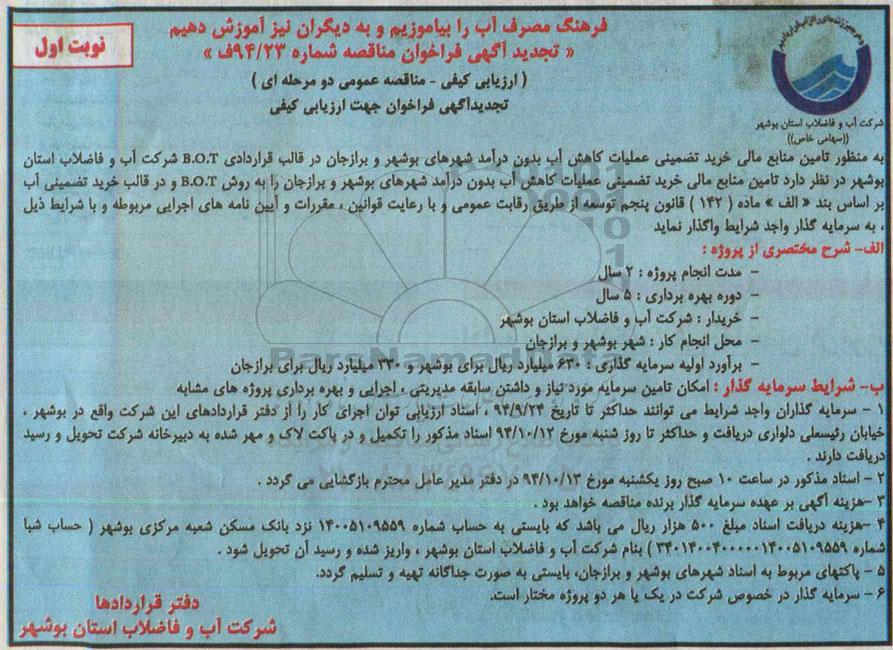 فرهنگ مصرف آب را بیاموزیم و به دیگران نیز آموزش دهیم
« تجدید آگهی فراخوان مناقصه شماره ۹۴/۲۳ف »
نوبت اول
( ارزیابی کیفی - مناقصه عمومی دو مرحله ای )
تجدیدآگهی فراخوان جهت ارزیابی کیفی
شرکت آب و فاضلاب استان بوشهر
((سهامی خاص))
به منظور تامین منابع مالی خرید تضمینی عملیات کاهش آب بدون درآمد شهرهای بوشهر و برازجان در قالب قراردادی B.O.T شرکت آب و فاضلاب استان
بوشهر در نظر دارد تامین منابع مالی خرید تضمینی عملیات کاهش آب بدون درآمد شهرهای بوشهر و برازجان را به روش B.O.T و در قالب خرید تضمینی آب
بر اساس بند « الف » ماده ( ۱۴۲ ) قانون پنجم توسعه از طریق رقابت عمومی و با رعایت قوانین ، مقررات و آیین نامه های اجرایی مربوطه و با شرایط ذیل
، به سرمایه گذار واجد شرایط واگذار نماید
الف- شرح مختصری از پروژه :
- مدت انجام پروژه : ۲ سال
- دوره بهره برداری : ۵ سال
- خریدار : شرکت آب و فاضلاب استان بوشهر
- محل انجام کار : شهر بوشهر و برازجان
- برآورد اولیه سرمایه گذاری : ۶۳۰ میلیارد ریال برای بوشهر و ۳۳۰ میلیارد ریال برای برازجان
ب- شرایط سرمایه گذار : امکان تامین سرمایه مورد نیاز و داشتن سابقه مدیریتی ، اجرایی و بهره برداری پروژه های مشابه
۱ - سرمایه گذاران واجد شرایط می توانند حداکثر تا تاریخ ۹۴/۹/۲۴ ، اسناد ارزیابی توان اجرای کار را از دفتر قراردادهای این شرکت واقع در بوشهر ،
خیابان رئیسعلی دلواری دریافت و حداکثر تا روز شنبه مورخ ۹۴/۱۰/۱۲ اسناد مذکور را تکمیل و در پاکت لاک و مهر شده به دبیرخانه شرکت تحویل و رسید
دریافت دارند .
۲ - اسناد مذکور در ساعت ۱۰ صبح روز یکشنبه مورخ ۹۴/۱۰/۱۳ در دفتر مدیر عامل محترم بازگشایی می گردد .
۳ -هزینه آگهی بر عهده سرمایه گذار برنده مناقصه خواهد بود .
۴ -هزینه دریافت اسناد مبلغ ۵۰۰ هزار ریال می باشد که بایستی به حساب شماره ۱۴۰۰۵۱۰۹۵۵۹ نزد بانک مسکن شعبه مرکزی بوشهر ( حساب شبا
شماره ۳۴۰۱۴۰۰۴۰۰۰۰۰۱۴۰۰۵۱۰۹۵۵۹ ) بنام شرکت آب و فاضلاب استان بوشهر ، واریز شده و رسید آن تحویل شود .
۵ - پاکتهای مربوط به اسناد شهرهای بوشهر و برازجان، بایستی به صورت جداگانه تهیه و تسلیم گردد.
۶ - سرمایه گذار در خصوص شرکت در یک یا هر دو پروژه مختار است.
دفتر قراردادها
شرکت آب و فاضلاب استان بوشهر
ParsNamadData